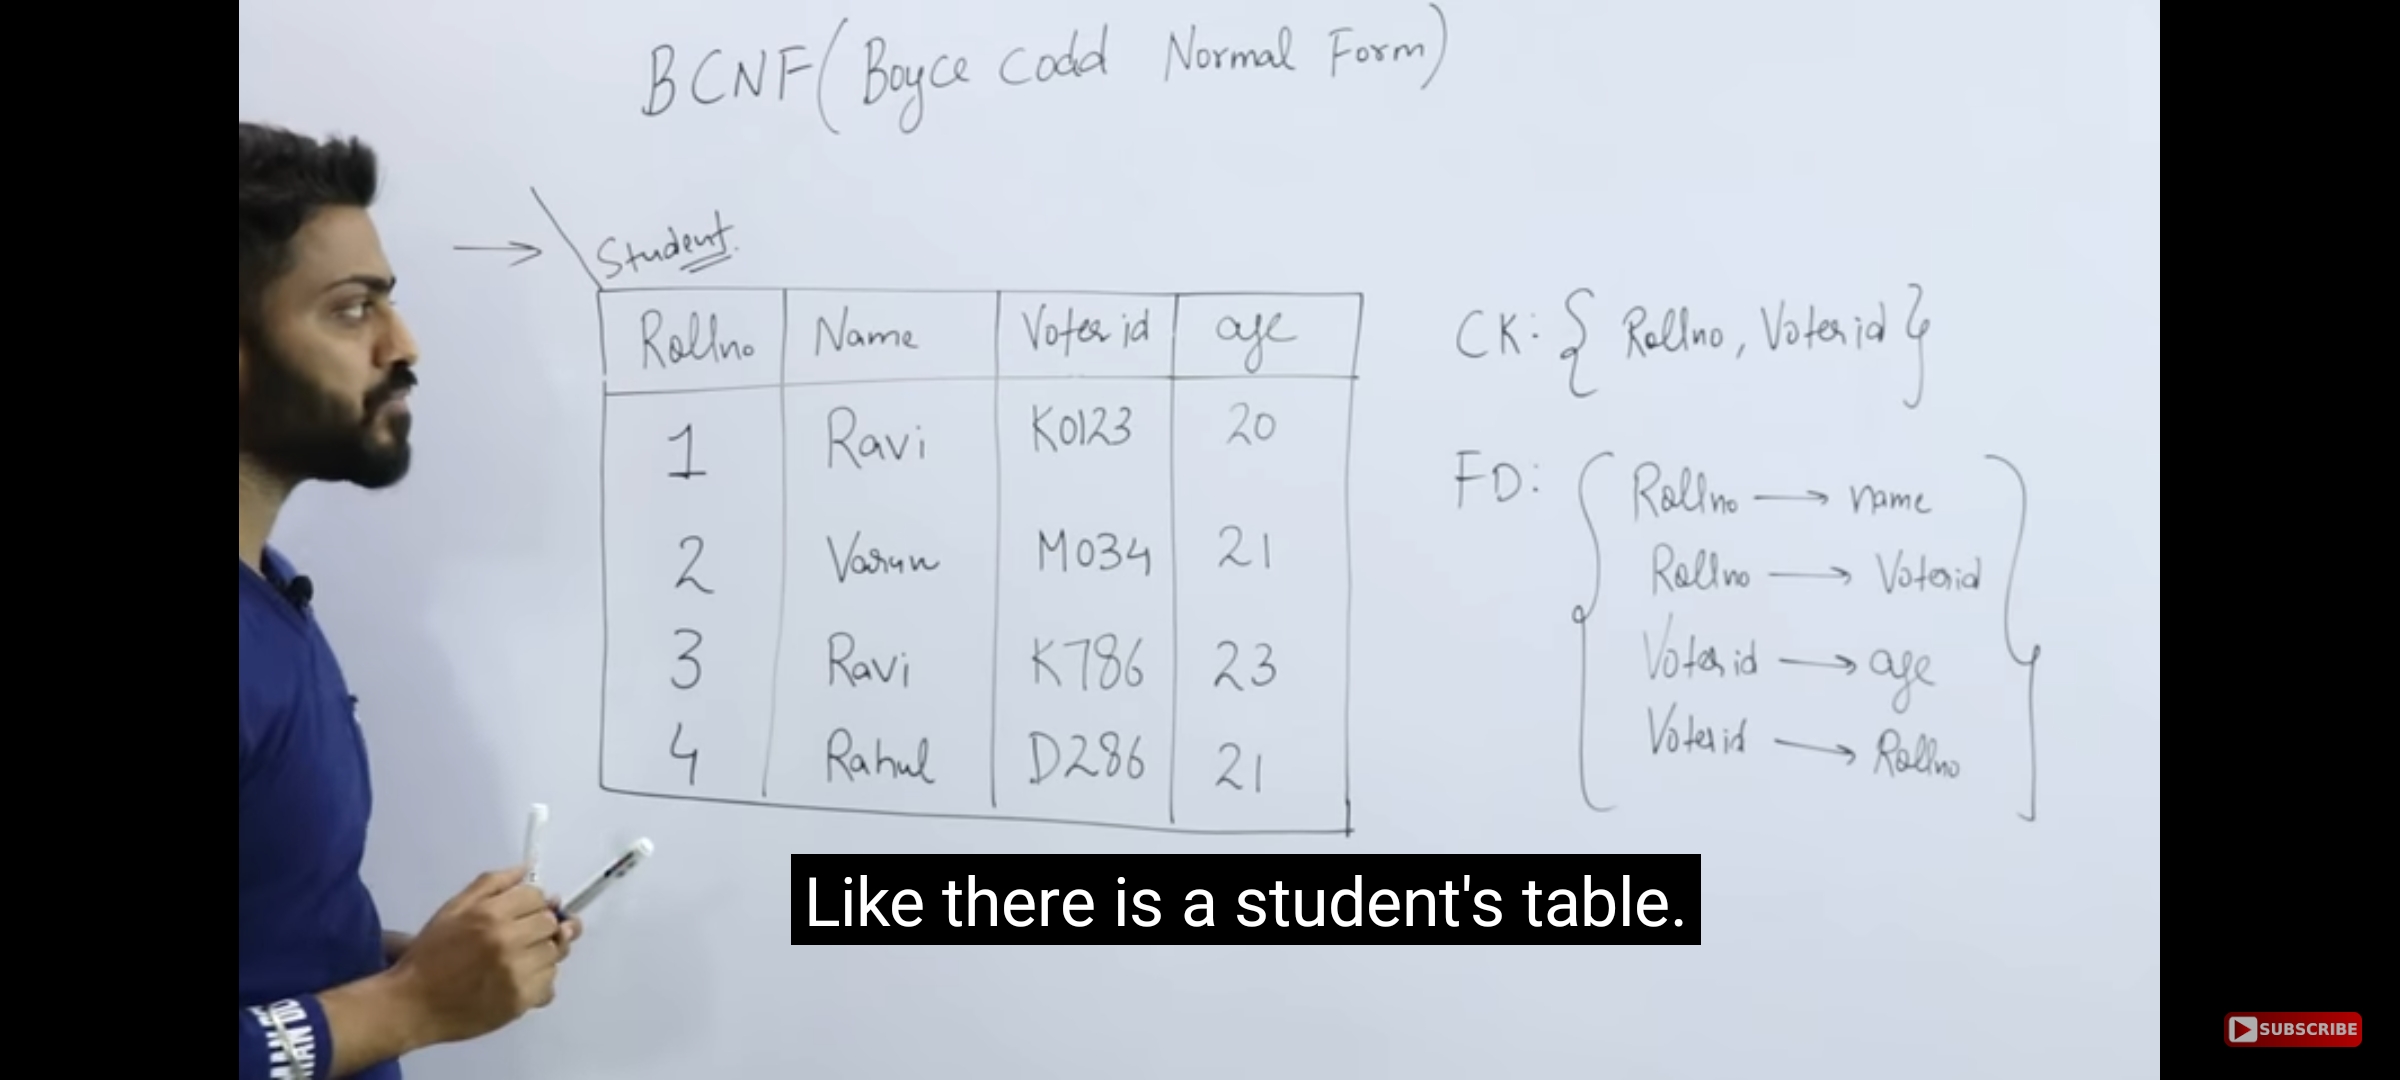 BCNF(Boyce Codd Normal Form)
Student.
Rollno Name Voter id age
1 Ravi K0123 20
2 Varun M034 21
3 Ravi K786 23
4 Rahul D286 21
CK: { Rollno, Voter id }
FD: { Rollno → name
Rollno → Voterid
Voter id → age
Voter id → Rollno }
Like there is a student's table.
SUBSCRIBE